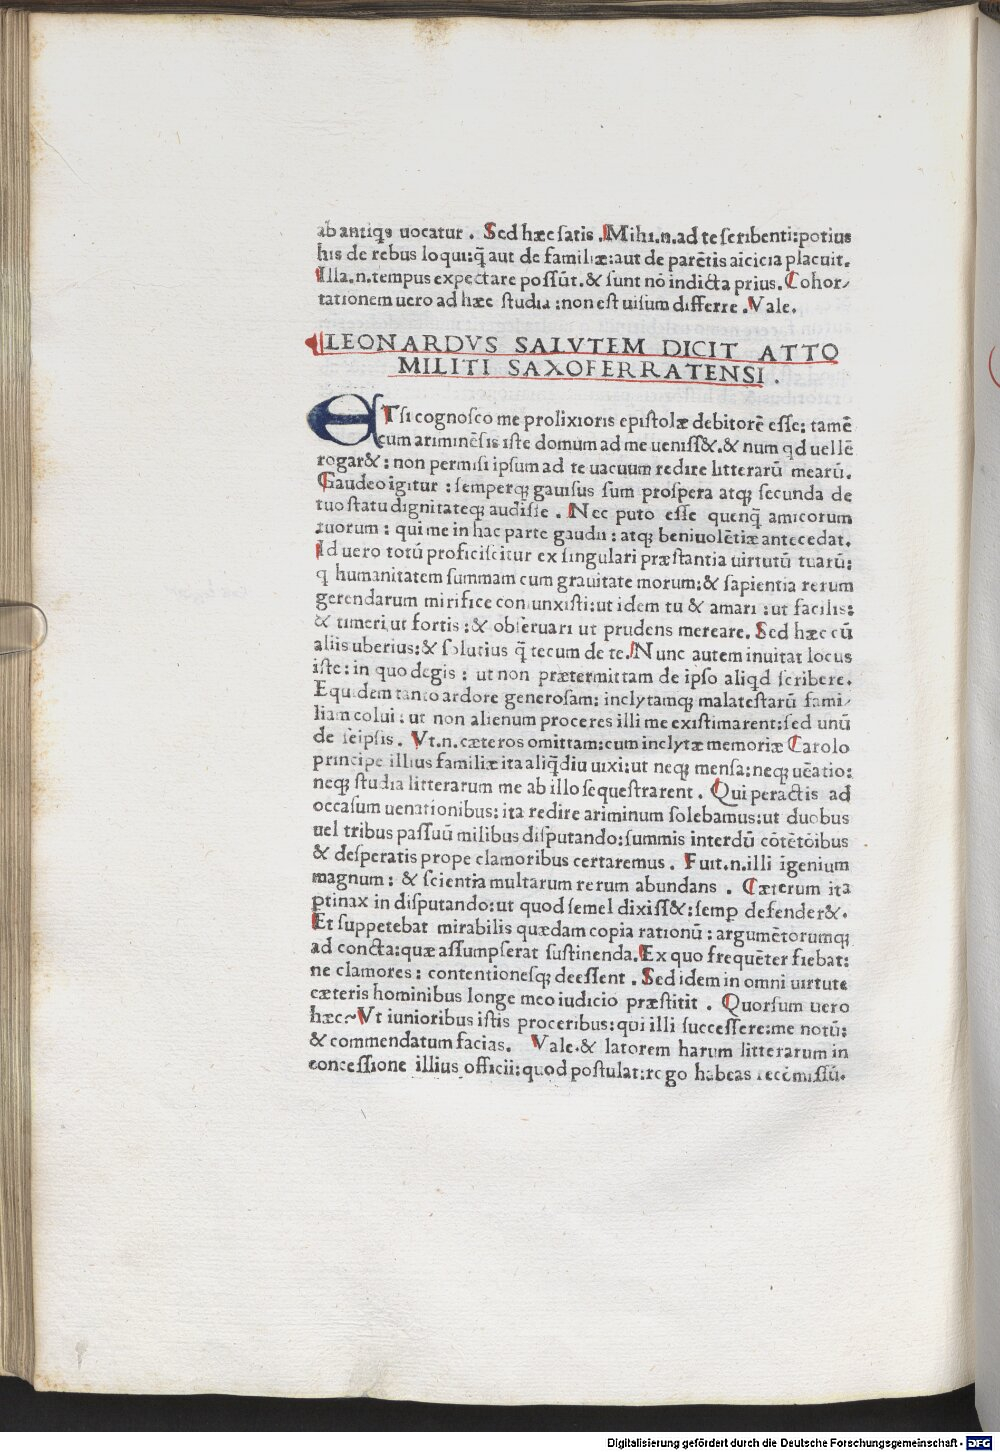 ab antiqs uocatur . Sed hæc satis . Mihi.n.ad te scribenti:potius
his de rebus loqui:q̄ aut de familiæ:aut de parētis aīcicia placuit.
Illa.n.tempus expectare possūt.& sunt nō indicta prius. Cohor-
tationem uero ad hæc studia :non est uisum differre . Vale.
LEONARDVS SALVTEM DICIT ATTO
MILITI SAXOFERRATENSI .
ETsi cognosco me prolixioris epistolæ debitorē esse: tamē
cum ariminēsis iste domum ad me ueniss&.& num qd uellē
rogar& : non permisi ipsum ad te uacuum redire litterarū mearū.
Gaudeo igitur : semperqꝫ gauisus sum prospera atqꝫ secunda de
tuo statu dignitateqꝫ audisse . Nec puto esse quenq̄ amicorum
tuorum : qui me in hac parte gaudii : atqꝫ beniuolētiæ antecedat.
Id uero totū proficiscitur ex singulari præstantia uirtutū tuarū:
q humanitatem summam cum grauitate morum:& sapientia rerum
gerendarum mirifice coniunxisti:ut idem tu & amari : ut facilis:
& timeri ut fortis : & obseruari ut prudens mereare. Sed hæc cū
aliis uberius:& solutius q̄ tecum de te. Nunc autem inuitat locus
iste: in quo degis : ut non prætermittam de ipso aliqd scribere.
Equidem tanto ardore generosam: inclytamqꝫ malatestarū fami-
liam colui : ut non alienum proceres illi me existimarent:sed unū
de seipsis . Vt.n.cæteros omittam:cum inclytæ memoriæ Carolo
principe illius familiæ ita aliq̄diu uixi:ut neqꝫ mensa:neqꝫ uēatio:
neqꝫ studia litterarum me ab illo sequestrarent . Qui peractis ad
occasum uenationibus: ita redire ariminum solebamus:ut duobus
uel tribus passuū milibus disputando:summis interdū cōtētōibus
& desperatis prope clamoribus certaremus . Fuit.n.illi igenium
magnum : & scientia multarum rerum abundans . Cæterum ita
ꝑtinax in disputando:ut quod semel dixiss&:semꝑ defender&.
Et suppetebat mirabilis quædam copia rationū : argumētorumqꝫ
ad concta:quæ assumpserat sustinenda. Ex quo frequēter fiebat:
ne clamores : contentionesqꝫ deessent . Sed idem in omni uirtute
cæteris hominibus longe meo iudicio præstitit . Quorsum uero
hæc~ Vt iunioribus istis proceribus:qui illi successere:me notū:
& commendatum facias. Vale.& latorem harum litterarum in
concessione illius officii:quod postulat:rogo habeas recōmissū.
Digitalisierung gefördert durch die Deutsche Forschungsgemeinschaft - DFG